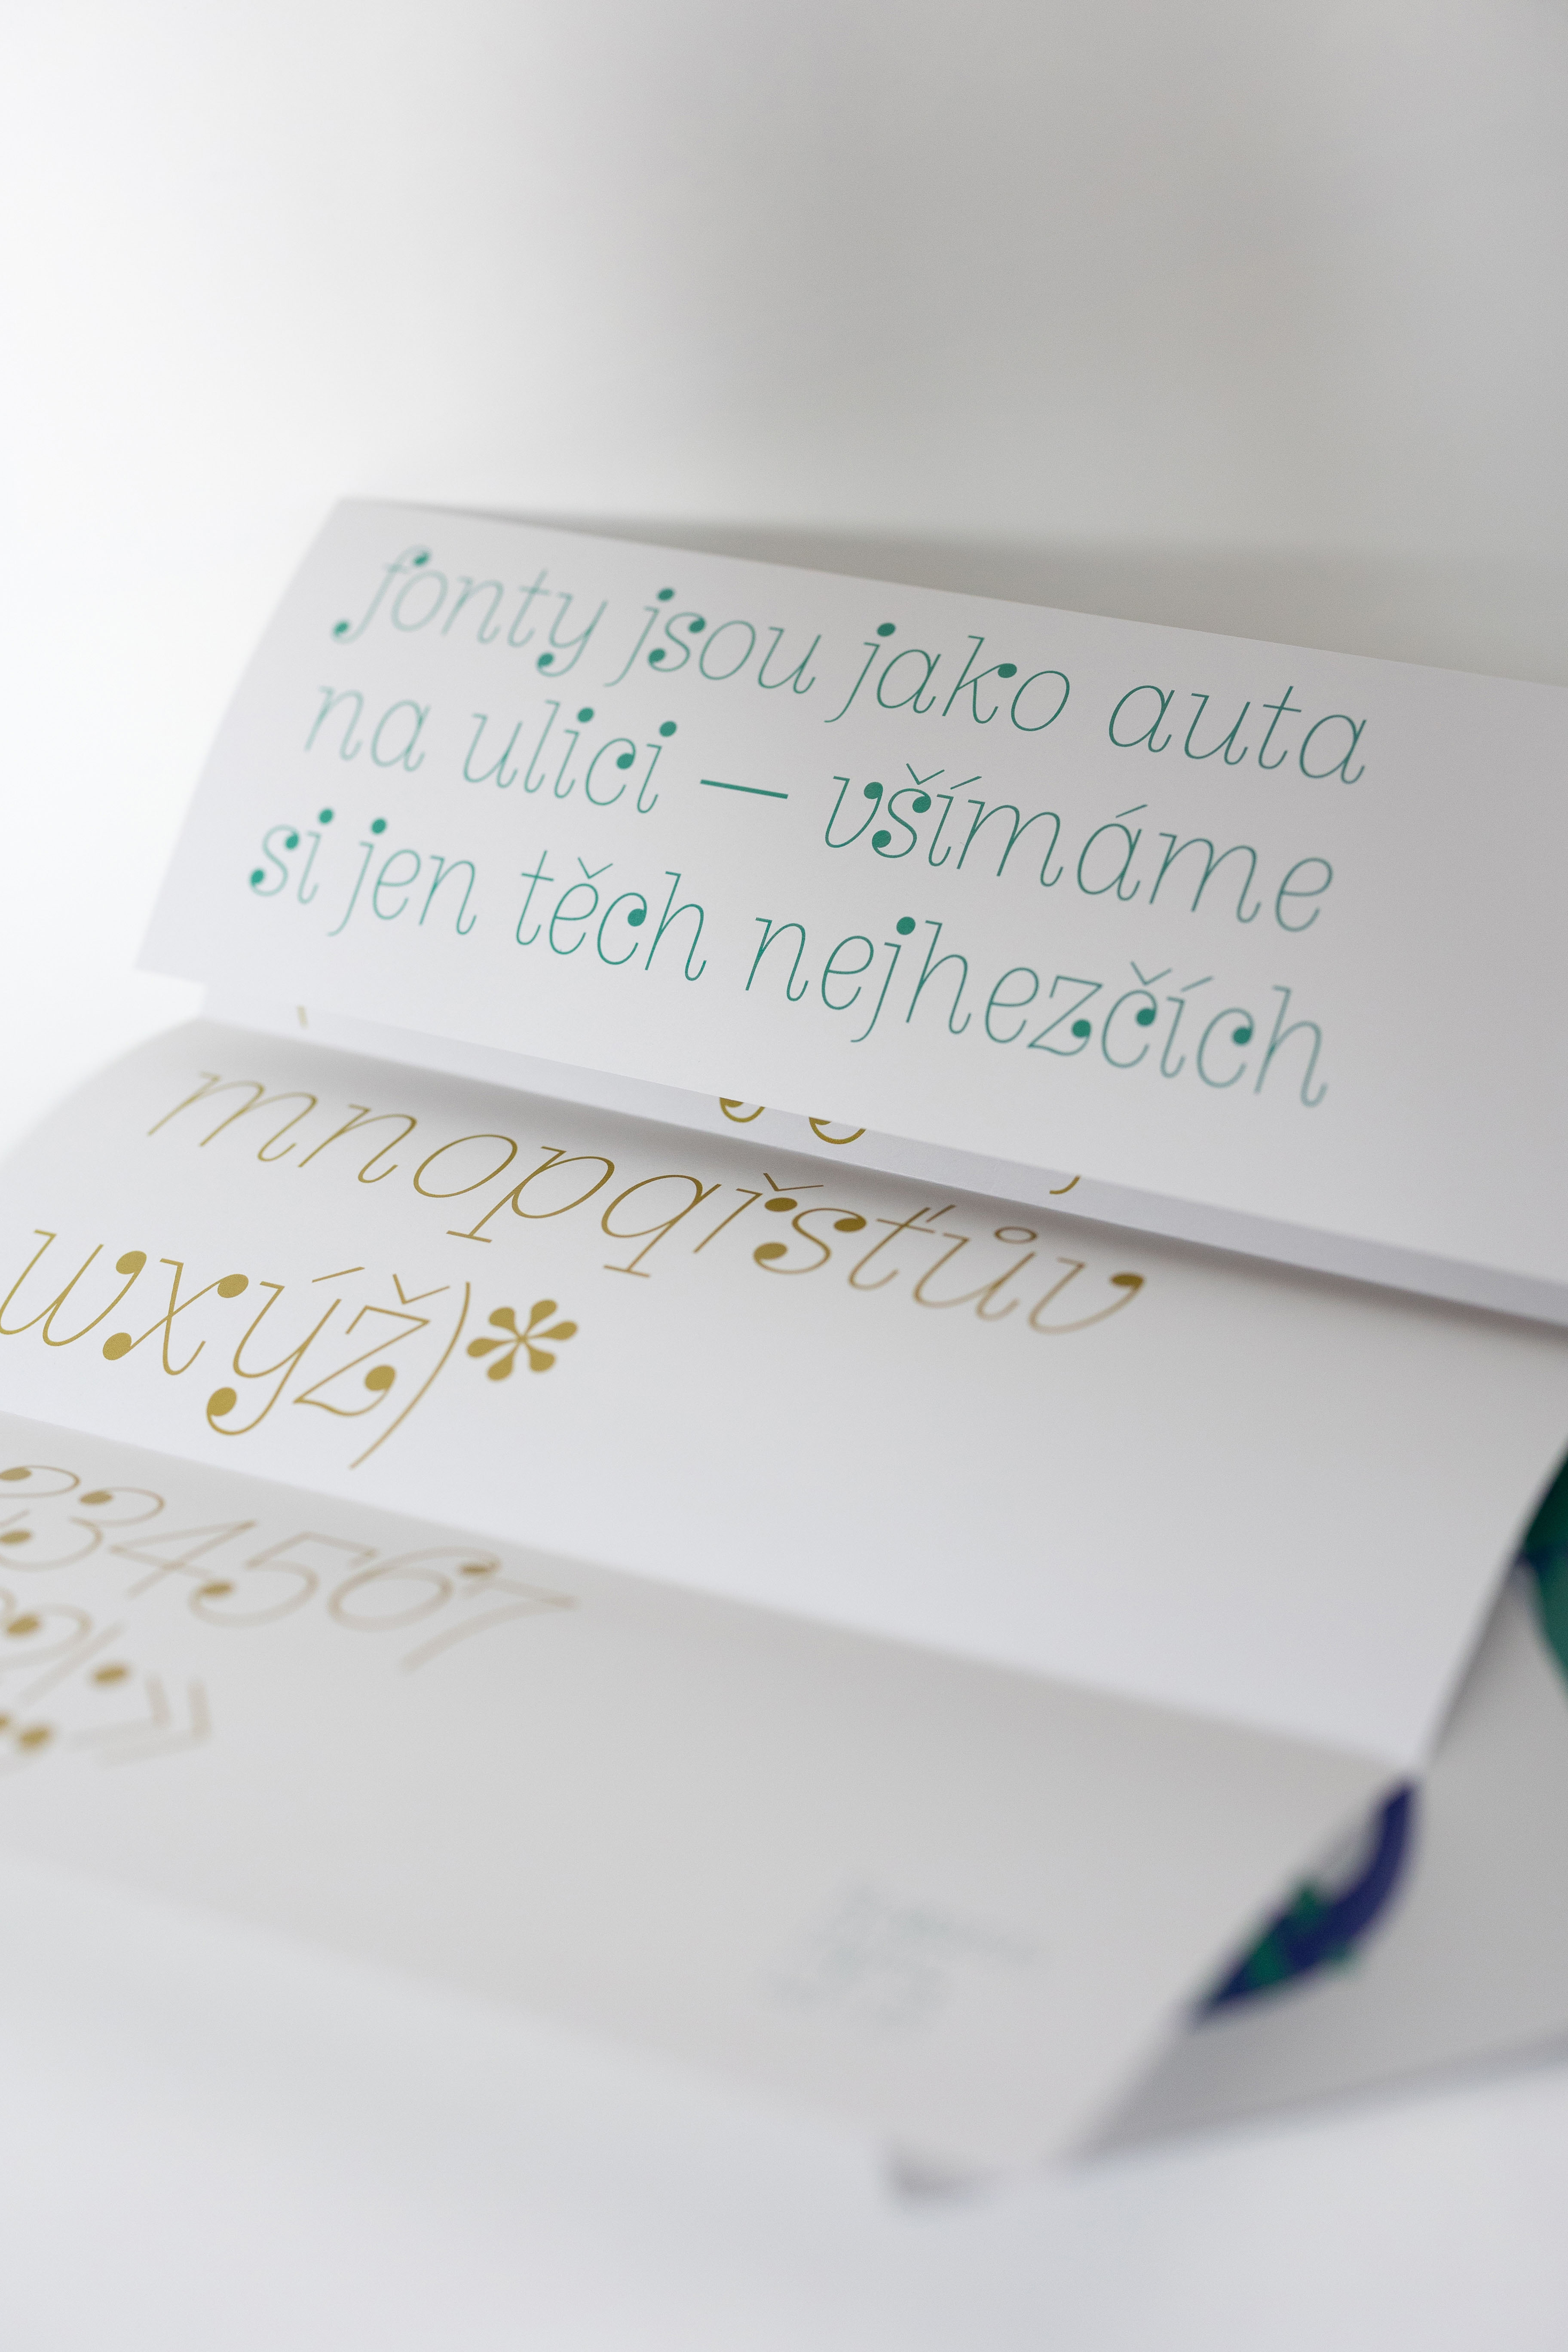 fonty jsou jako auta
na ulici — všímáme
si jen těch nejhezčích
mnopqřsťův
wxýž)*
234567